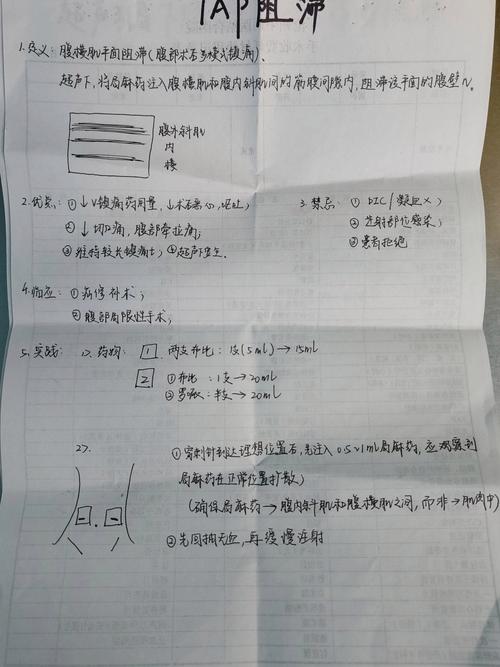 TAP阻滞
1.定义：腹横肌平面阻滞（腹部术后多模式镇痛）.
超声下，将局麻药注入腹横肌和腹内斜肌间的筋膜间隙内，阻滞该平面的腹壁N。
腹外斜肌
内
横
2.优点：①↓V镇痛药用量，↓术后恶心、呕吐；
②↓切口痛，腹部牵拉痛；
③维持较长镇痛t；④超声卫生.
3.禁忌：①DIC/凝血×；
②注射部位感染；
③患者拒绝
4.临应：①疝修补术；
②腹部局限性手术；
5.实践：1>.药物：1 两支布比：1支(5ml)→15ml
2 ①布比：1支→20ml
②罗哌：半支→20ml
2>.
①穿刺针到达理想位置后，先注入0.5~1ml局麻药，应观察到
局麻药在正常位置扩散）
（确保局麻药→腹内斜肌和腹横肌之间，而非→肌肉中）
②先回抽无血，再缓慢注射